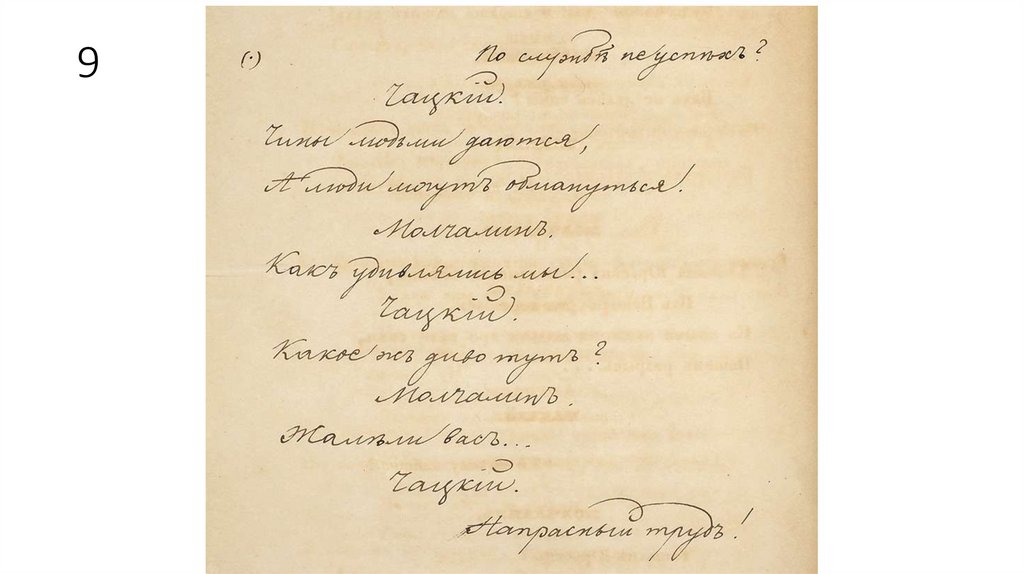 9
(·) По службѣ неуспѣхъ?
Чацкій.
Чины людьми даются,
А люди могутъ обмануться!
Молчалинъ.
Какъ удивлялись мы...
Чацкій.
Какое жъ диво тутъ?
Молчалинъ.
Жалѣли васъ...
Чацкій.
Напрасный трудъ!